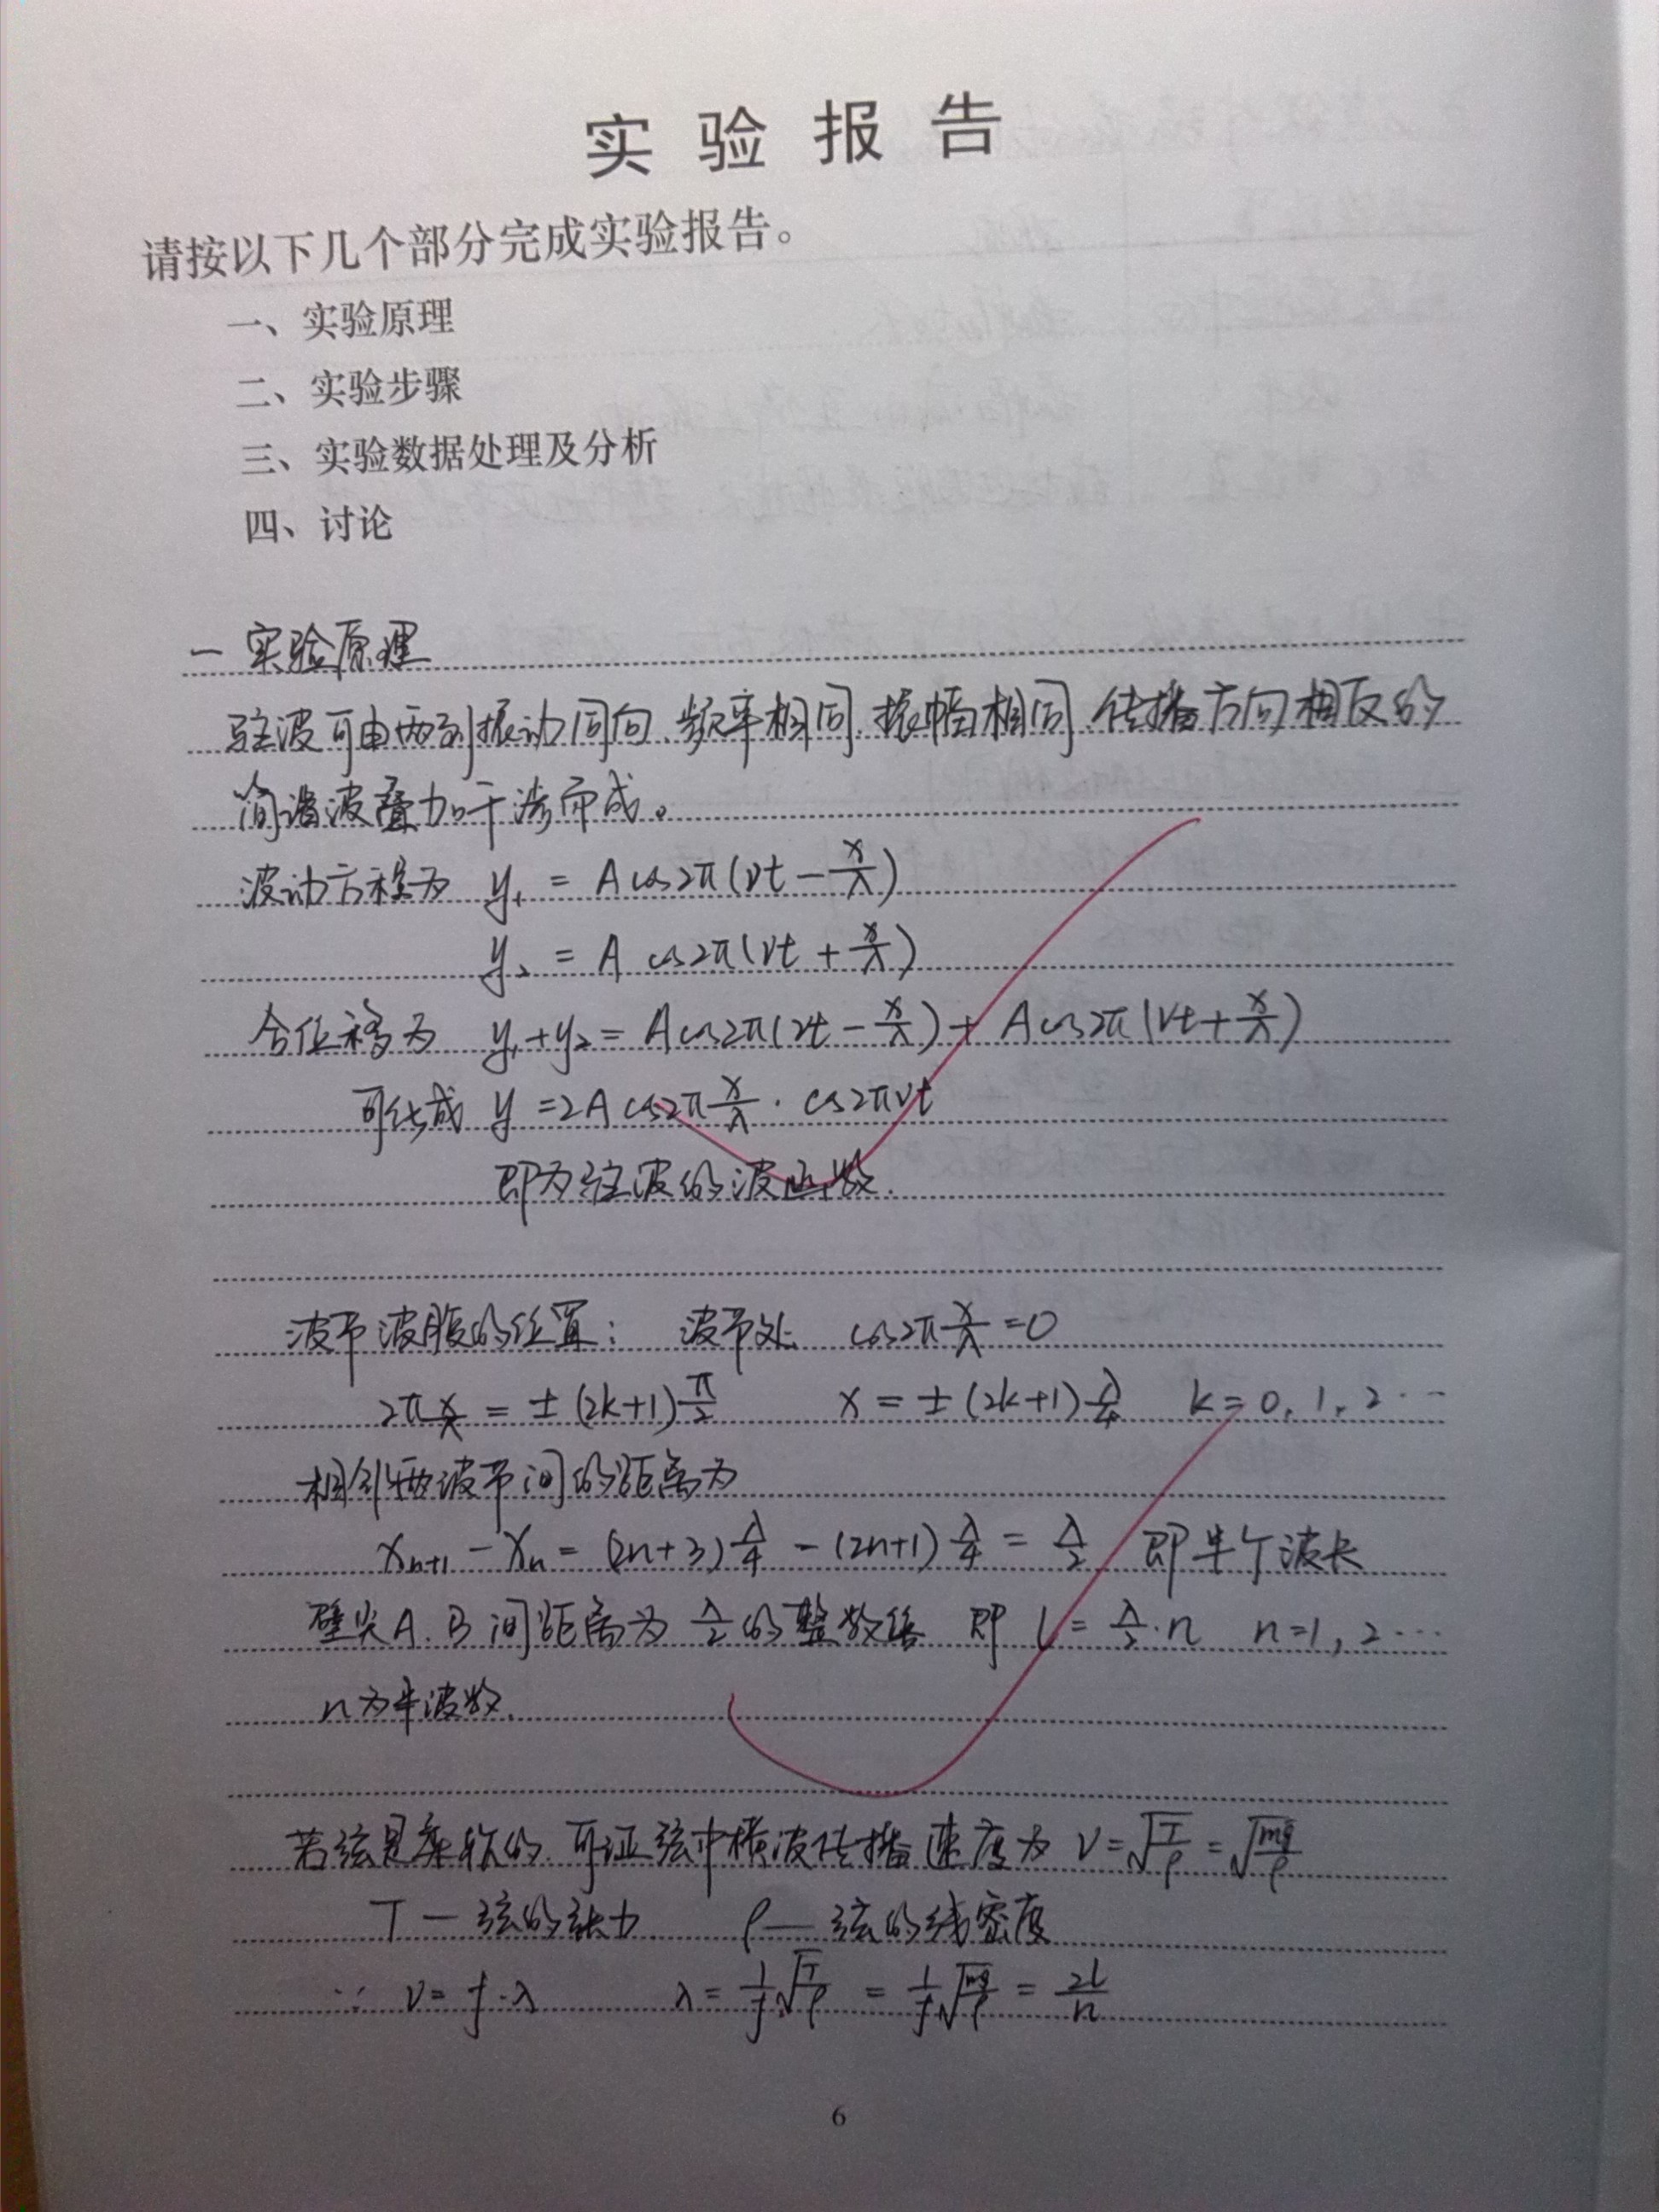 实验报告
请按以下几个部分完成实验报告。
一、实验原理
二、实验步骤
三、实验数据处理及分析
四、讨论
一 实验原理
驻波可由两列振动同向、频率相同、振幅相同、传播方向相反的
简谐波叠加干涉而成。
波动方程为 y₁ = A cos2π(νt − x/λ)
y₂ = A cos2π(νt + x/λ)
合位移为 y₁+y₂ = A cos2π(νt − x/λ) + A cos2π(νt + x/λ)
可化成 y = 2A cos2π x/λ · cos2πνt
即为驻波的波函数.
波节波腹的位置: 波节处 cos2π x/λ = 0
2π x/λ = ± (2k+1) π/2 x = ± (2k+1) λ/4 k = 0, 1, 2 …
相邻两波节间的距离为
xₙ₊₁ − xₙ = (2n+3) λ/4 − (2n+1) λ/4 = λ/2 即半个波长
劈尖A、B间距离为 λ/2 的整数倍 即 L = λ/2 · n n=1, 2 …
n为半波数.
若弦是柔软的,可证弦中横波传播速度为 V = √(T/ρ) = √(mg/ρ)
T — 弦的张力 ρ — 弦的线密度
∵ V = f · λ λ = 1/f √(T/ρ) = 1/f √(mg/ρ) = 2L/n
6